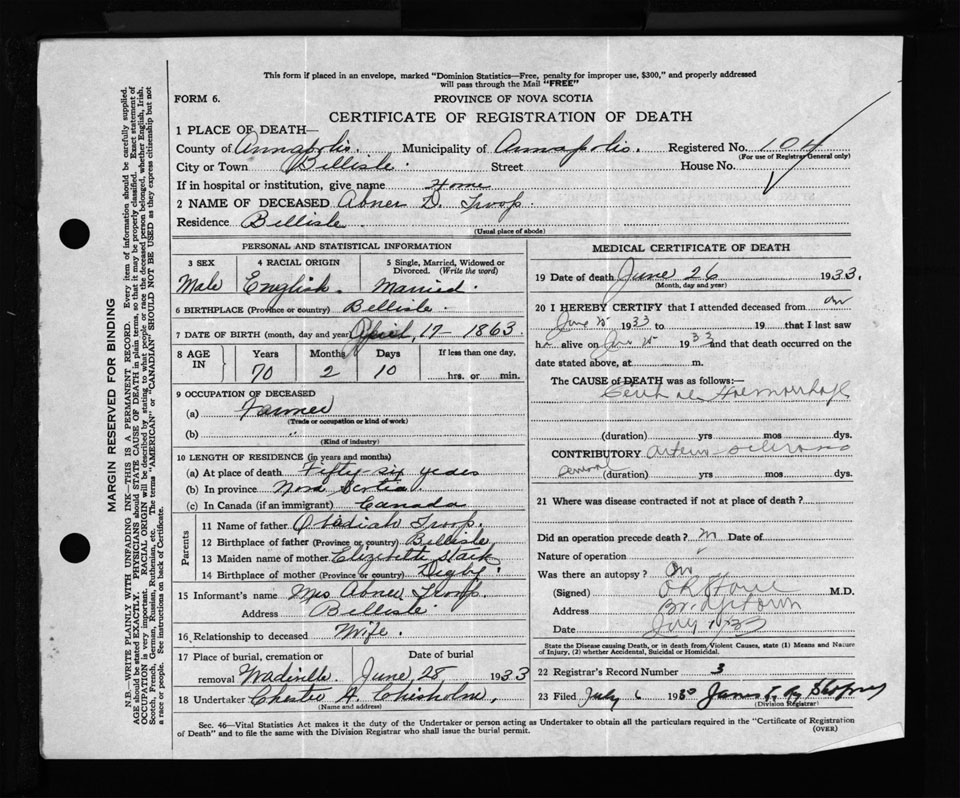 This form if placed in an envelope, marked "Dominion Statistics—Free, penalty for improper use, $300," and properly addressed
will pass through the Mail "FREE"
FORM 6.
PROVINCE OF NOVA SCOTIA
CERTIFICATE OF REGISTRATION OF DEATH
1 PLACE OF DEATH—
County of Annapolis. Municipality of Annapolis. Registered No. 104
(For use of Registrar General only)
City or Town Bellisle. Street House No.
If in hospital or institution, give name Home
2 NAME OF DECEASED Abner D. Troop.
Residence Bellisle.
(Usual place of abode)
PERSONAL AND STATISTICAL INFORMATION
3 SEX 4 RACIAL ORIGIN 5 Single, Married, Widowed or Divorced. (Write the word)
Male English. Married.
6 BIRTHPLACE (Province or country) Bellisle.
7 DATE OF BIRTH (month, day and year) April, 17 - 1863
8 AGE IN Years Months Days If less than one day,
70 2 10 hrs. or min.
9 OCCUPATION OF DECEASED
(a) Farmer
(Trade or occupation or kind of work)
(b) "
(Kind of industry)
10 LENGTH OF RESIDENCE (in years and months)
(a) At place of death Fifty-six years
(b) In province Nova Scotia
(c) In Canada (if an immigrant) Canada
Parents
11 Name of father Obadiah Troop.
12 Birthplace of father (Province or country) Bellisle
13 Maiden name of mother Elizabeth
14 Birthplace of mother (Province or country) Digby.
15 Informant's name Mrs Abner Troop.
Address Bellisle.
16 Relationship to deceased Wife.
17 Place of burial, cremation or Date of burial
removal Wadeville. June, 28, 1933
18 Undertaker Chester A. Chisholm,
(Name and address)
MEDICAL CERTIFICATE OF DEATH
19 Date of death June 26 1933.
(Month, day and year)
20 I HEREBY CERTIFY that I attended deceased from
June 1933 to 19 that I last saw
h alive on 1933 and that death occurred on the
date stated above, at m.
The CAUSE OF DEATH was as follows:—
Haemorrhage
(duration) yrs mos dys.
CONTRIBUTORY
(duration) yrs mos dys.
21 Where was disease contracted if not at place of death?
Did an operation precede death? Date of
Nature of operation
Was there an autopsy?
(Signed) M.D.
Address Bridgetown
Date July 1933
State the Disease causing Death, or in death from Violent Causes, state (1) Means and Nature
of Injury, (2) whether Accidental, Suicidal or Homicidal.
22 Registrar's Record Number 3
23 Filed July 6 19
(Division Registrar)
Sec. 46—Vital Statistics Act makes it the duty of the Undertaker or person acting as Undertaker to obtain all the particulars required in the "Certificate of Registration
of Death" and to file the same with the Division Registrar who shall issue the burial permit.
(OVER)
MARGIN RESERVED FOR BINDING
N.B.—WRITE PLAINLY WITH UNFADING INK—THIS IS A PERMANENT RECORD. Every item of information should be carefully supplied.
AGE should be stated EXACTLY. PHYSICIANS should STATE CAUSE OF DEATH in plain terms, so that it may be properly classified. Exact statement of
OCCUPATION is very important. RACIAL ORIGIN will be described by stating to what people or race the deceased person belonged, whether English, Irish,
Scotch, French, German, Russian, Ruthenian, etc. The terms "AMERICAN" or "CANADIAN" SHOULD NOT BE USED as they express citizenship but not
a race or people. See instructions on back of Certificate.